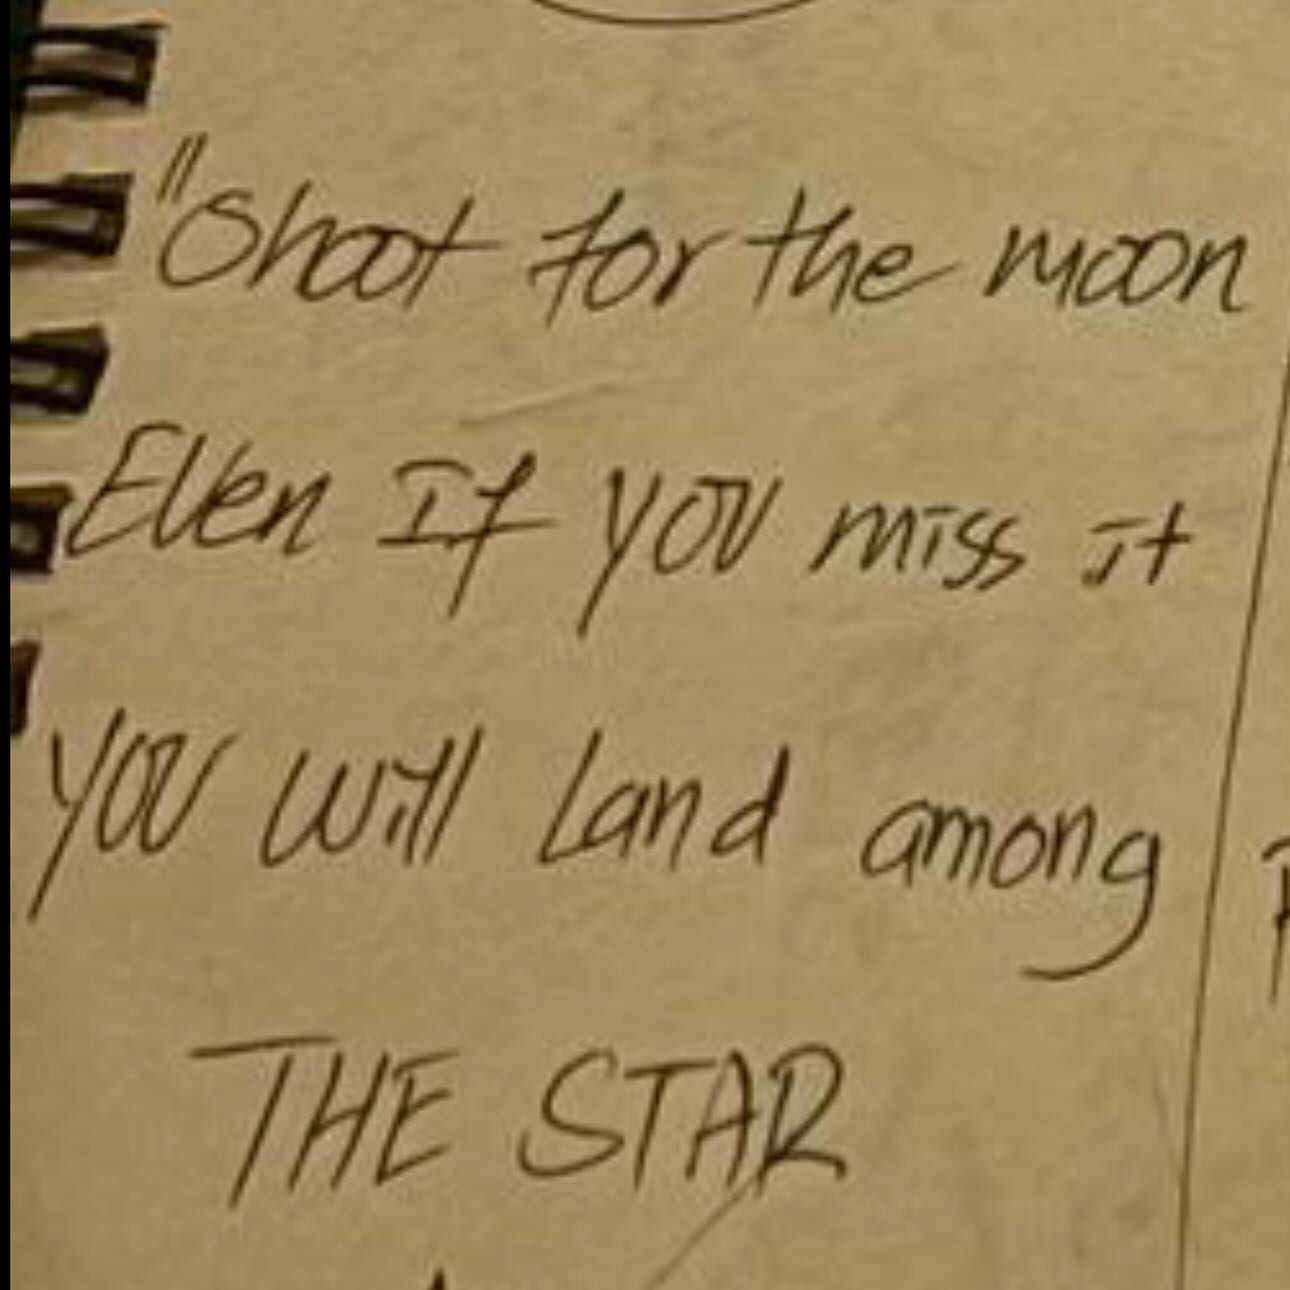 "Shoot for the moon
Even If you miss it
you will Land among
THE STAR